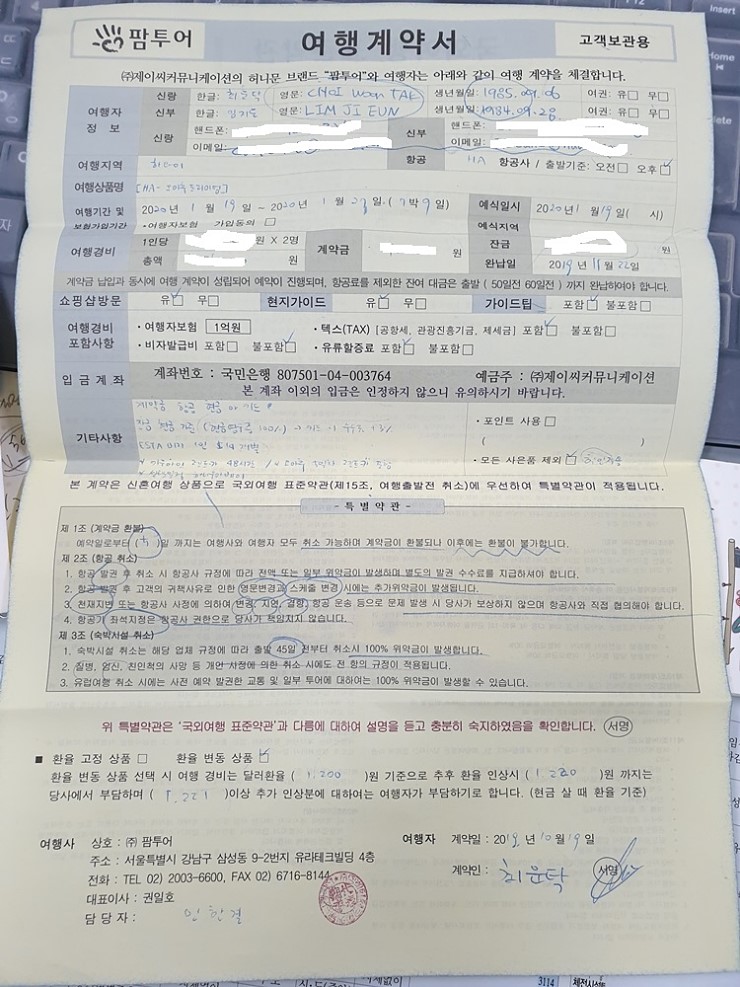 팜투어 여행계약서 고객보관용
㈜제이씨커뮤니케이션의 허니문 브랜드 "팜투어"와 여행자는 아래와 같이 여행 계약을 체결합니다.
여행자 정보
신랑 한글: 최윤탁 영문: CHOI WOON TAK 생년월일: 1985.09.06 여권: 유□ 무□
신부 한글: 임지은 영문: LIM JI EUN 생년월일: 1984.09.28 여권: 유□ 무□
신랑 핸드폰: 신부 핸드폰:
이메일: 이메일:
여행지역 하와이 항공 HA 항공사 / 출발기준: 오전□ 오후☑
여행상품명
여행기간 및 보험가입기간 2020년 1월 19일 ~ 2020년 1월 27일 (7박 9일) 예식일시 2020년 1월 19일 ( 시)
•여행자보험 가입동의 □ 예식지역
여행경비 1인당 원 X 2명 계약금 원 잔금 원
총액 원 완납일 2019년 11월 22일
계약금 납입과 동시에 여행 계약이 성립되어 예약이 진행되며, 항공료를 제외한 잔여 대금은 출발 ( 50일전 60일전 ) 까지 완납하여야 합니다.
쇼핑샵방문 유☑ 무□ 현지가이드 유☑ 무□ 가이드팁 포함☑ 불포함□
여행경비 포함사항 • 여행자보험 1억원 • 텍스(TAX) [공항세, 관광진흥기금, 제세금] 포함☑ 불포함□
• 비자발급비 포함□ 불포함☑ • 유류할증료 포함☑ 불포함□
입금계좌 계좌번호 : 국민은행 807501-04-003764 예금주 : ㈜제이씨커뮤니케이션
본 계좌 이외의 입금은 인정하지 않으니 유의하시기 바랍니다.
기타사항
• 포인트 사용□
( )
• 모든 사은품 제외☑
본 계약은 신혼여행 상품으로 국외여행 표준약관(제15조, 여행출발전 취소)에 우선하여 특별약관이 적용됩니다.
- 특별약관 -
제 1조 (계약금 환불)
예약일로부터 ( )일 까지는 여행사와 여행자 모두 취소 가능하며 계약금이 환불되나 이후에는 환불이 불가합니다.
제 2조 (항공 취소)
1. 항공 발권 후 취소 시 항공사 규정에 따라 전액 또는 일부 위약금이 발생하며 별도의 발권 수수료를 지급하셔야 합니다.
2. 항공 발권 후 고객의 귀책사유로 인한 영문변경과 스케줄 변경 시에는 추가위약금이 발생됩니다.
3. 천재지변 또는 항공사 사정에 의하여 변경, 지연, 결항, 항공 운송 등으로 문제 발생 시 당사가 보상하지 않으며 항공사와 직접 협의해야 합니다.
4. 항공기 좌석지정은 항공사 권한으로 당사가 책임지지 않습니다.
제 3조 (숙박시설 취소)
1. 숙박시설 취소는 해당 업체 규정에 따라 출발 45일 전부터 취소시 100% 위약금이 발생합니다.
2. 질병, 임신, 친인척의 사망 등 개인 사정에 의한 취소 시에도 전 항의 규정이 적용됩니다.
3. 유럽여행 취소 시에는 사전 예약 발권한 교통 및 일부 투어에 대하여는 100% 위약금이 발생할 수 있습니다.
위 특별약관은 '국외여행 표준약관'과 다름에 대하여 설명을 듣고 충분히 숙지하였음을 확인합니다. 서명
■ 환율 고정 상품 □ 환율 변동 상품 ☑
환율 변동 상품 선택 시 여행 경비는 달러환율 ( 1,200 )원 기준으로 추후 환율 인상시 ( 1,220 )원 까지는
당사에서 부담하며 ( 1,221 )이상 추가 인상분에 대하여는 여행자가 부담하기로 합니다. (현금 살 때 환율 기준)
여행사 상호 : ㈜ 팜투어 여행자 계약일 : 2019년 10월 19일
주소 : 서울특별시 강남구 삼성동 9-2번지 유라테크빌딩 4층
계약인 : 최윤탁 서명
전화 : TEL 02) 2003-6600, FAX 02) 6716-8144
대표이사 : 권일호
담당자 : 민한결
Insert
Home
3114